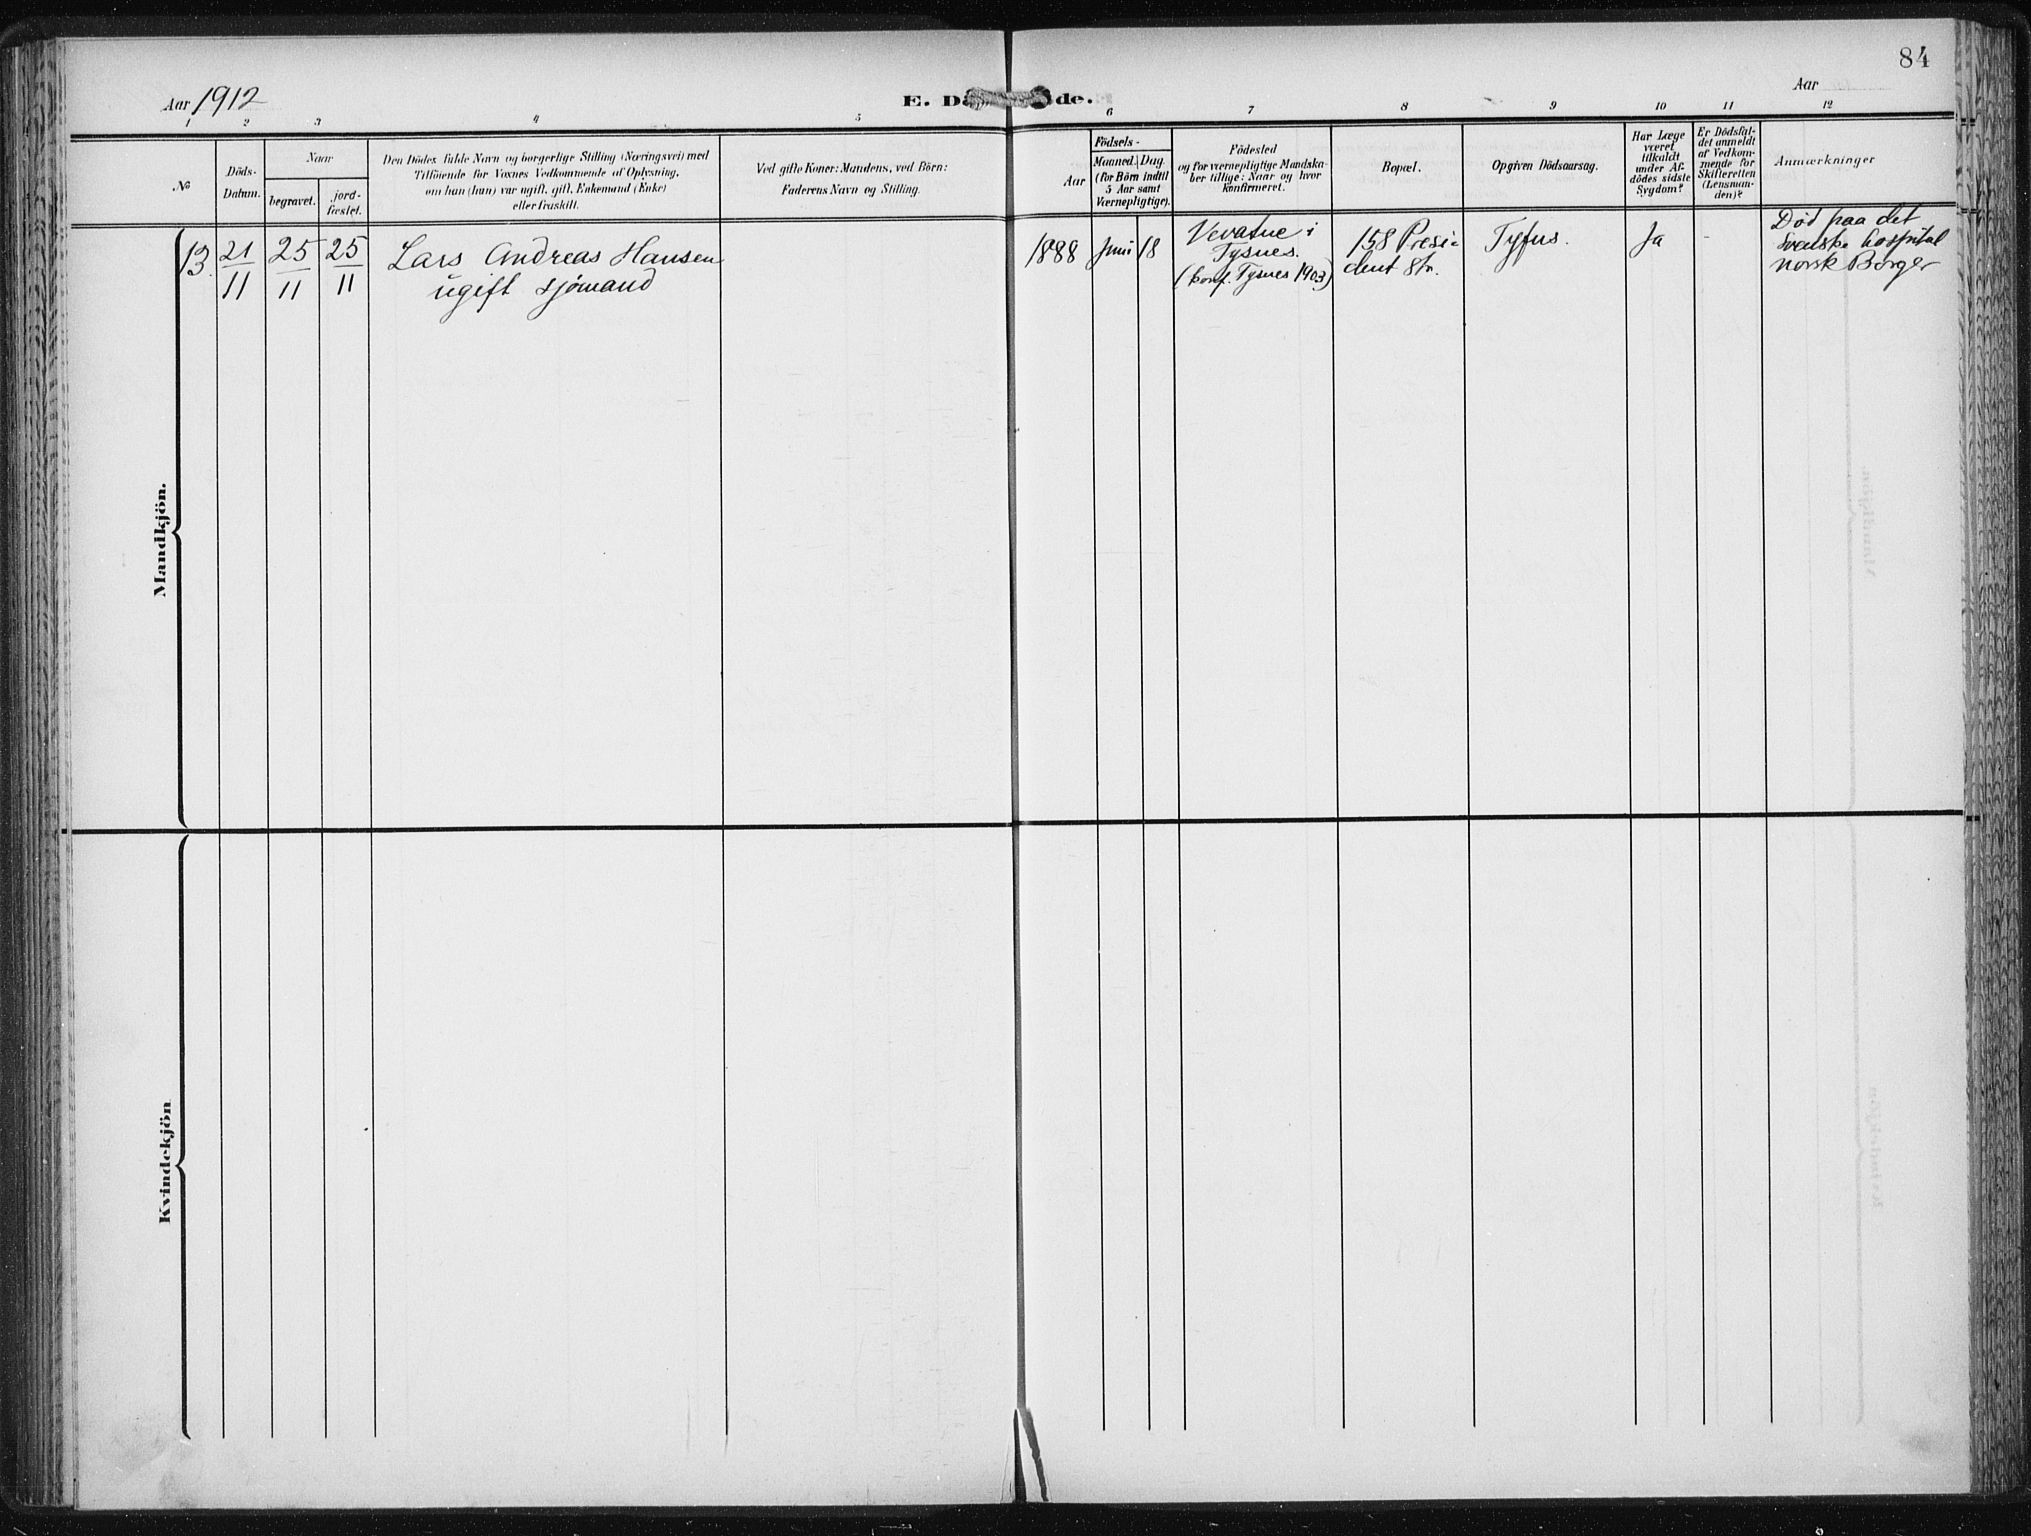 84
Aar 1912
E. Dö de.
Aar
1 2 3 4 5 6 7 8 9 10 11 12
№
Döds-
Datum.
Naar
begravet.
jord-
fæstet.
Den Dödes fulde Navn og borgerlige Stilling (Næringsvei) med
Tilföiende for Voxnes Vedkommende af Oplysning,
om han (hun) var ugift, gift, Enkemand (Enke)
eller fraskilt.
Ved gifte Koner: Mandens, ved Börn:
Faderens Navn og Stilling.
Födsels-
Aar
Maaned. Dag.
(for Börn indtil
5 Aar samt
Værnepligtige).
Födested
og for værnepligtige Mandska-
ber tillige: Naar og hvor
konfirmeret.
Bopæl.
Opgiven Dödsaarsag.
Har Læge
været
tilkaldt
under Af-
dödes sidste
Sygdom?
Er Dödsfal-
det anmeldt
af Vedkom-
mende for
Skifteretten
(Lensman-
den)?
Anmærkninger
13.
21/11
25/11
25/11
Lars Andreas Hansen
ugift sjømand
1888
Juni
18
Vevatne i
Tysnes.
(konf. Tysnes 1903)
158 Presi-
dent Str.
Tyfus.
Ja
-
Død paa det
svenske hospital
norsk Borger
Mandkjön.
Kvindekjön